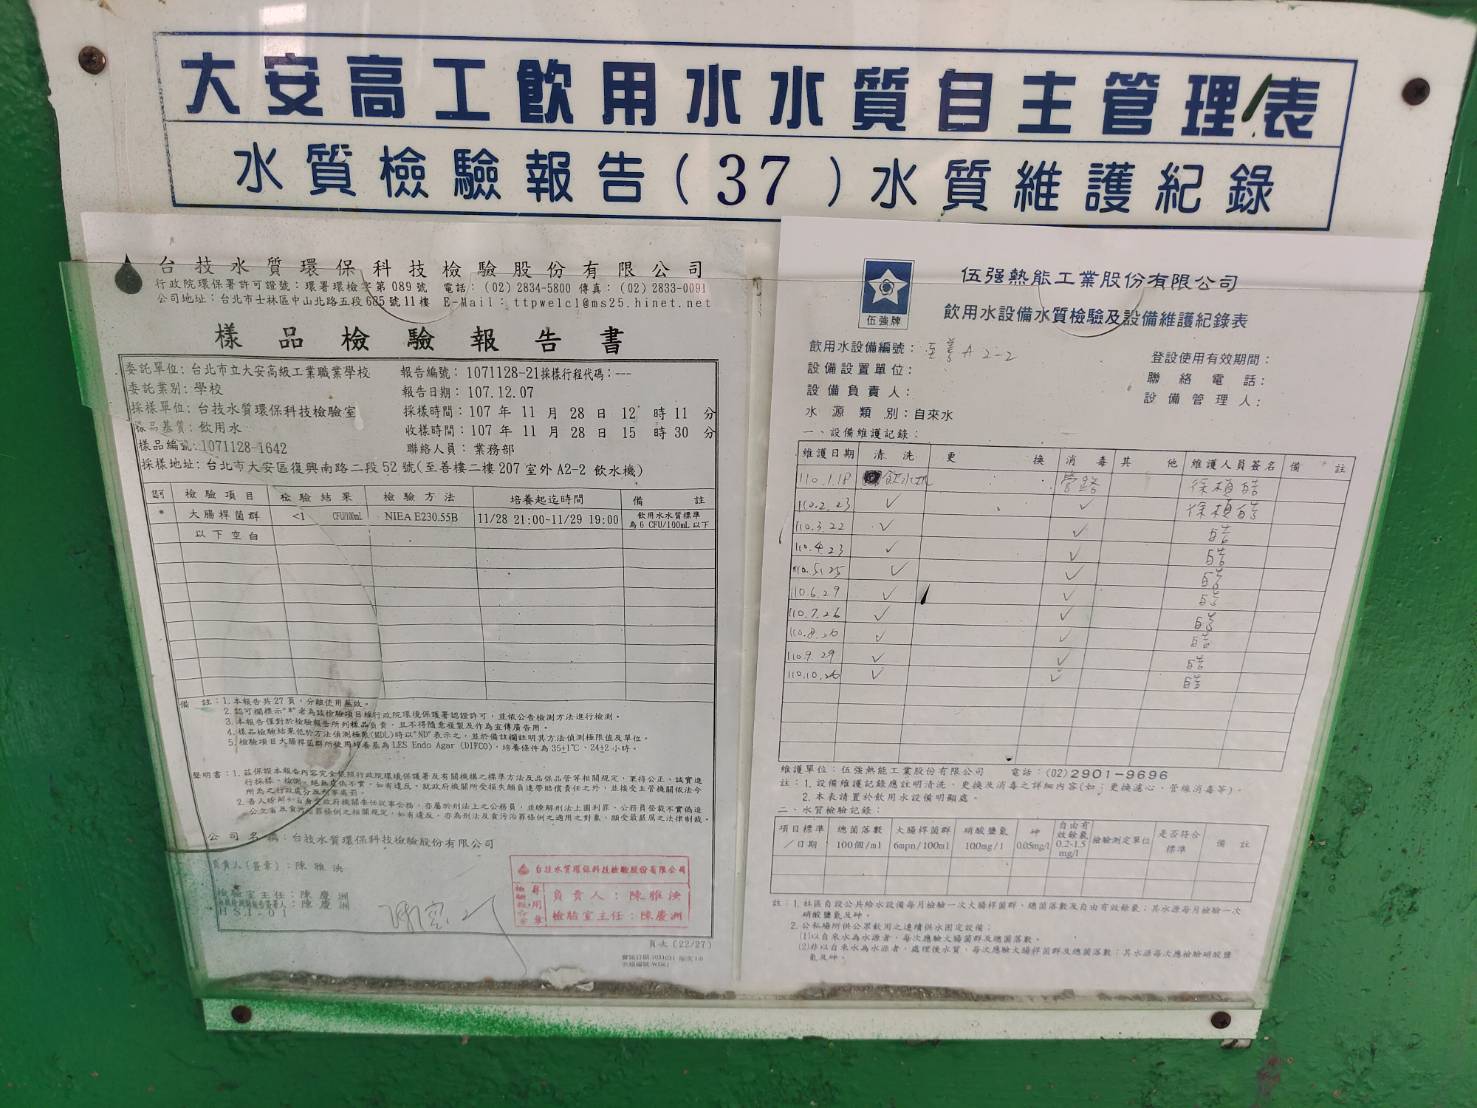 大安高工飲用水水質自主管理表
水質檢驗報告(37)水質維護紀錄
台技水質環保科技檢驗股份有限公司
行政院環保署許可證號：環署環檢字第089號 電話：(02)2834-5800 傳真：(02)2833-0091
公司地址：台北市士林區中山北路五段685號11樓 E-Mail：ttpwelcl@ms25.hinet.net
樣品檢驗報告書
委託單位：台北市立大安高級工業職業學校 報告編號：1071128-21採樣行程代碼：---
委託業別：學校 報告日期：107.12.07
採樣單位：台技水質環保科技檢驗室 採樣時間：107年11月28日12時11分
樣品基質：飲用水 收樣時間：107年11月28日15時30分
樣品編號：1071128-1642 聯絡人員：業務部
採樣地址：台北市大安區復興南路二段52號(至善樓二樓207室外A2-2飲水機)
檢驗項目 檢驗結果 檢驗方法 培養起迄時間 備註
* 大腸桿菌群 <1 CFU/100mL NIEA E230.55B 11/28 21:00~11/29 19:00 飲用水水質標準
為6 CFU/100mL以下
以下空白
備註：1.本報告共27頁，分離使用無效。
2.認可欄標示"*"者為該檢驗項目經行政院環境保護署認證許可，並依公告檢測方法進行檢測。
3.本報告僅對於檢驗報告所列樣品負責，且不得隨意複製及作為宣傳廣告用。
4.樣品檢驗結果低於方法偵測極限(MDL)時以"ND"表示之，並於備註欄註明其方法偵測極限值及單位。
5.檢驗項目大腸桿菌群所使用培養基為LES Endo Agar (DIFCO)，培養條件為35±1℃、24±2小時。
聲明書：1.茲保證本報告內容完全依照行政院環境保護署及有關機構之標準方法及品保品管等相關規定，秉持公正、誠實進
行採樣、檢測。絕無虛偽不實，如有違反，就政府機關所受損失願負連帶賠償責任之外，並接受主管機關依法令
所為之行政處分及刑事處罰。
公司名稱：台技水質環保科技檢驗股份有限公司
負責人(簽章)：陳雅泱
檢驗室主任：陳慶洲
陳慶洲
HSI-01
台技水質環保科技檢驗股份有限公司
檢驗報告 專用章
負責人：陳雅泱
檢驗室主任：陳慶洲
頁次(22/27)
伍強牌
伍强熱能工業股份有限公司
飲用水設備水質檢驗及設備維護紀錄表
飲用水設備編號：至善A2-2 登設使用有效期間：
設備設置單位： 聯絡電話：
設備負責人： 設備管理人：
水源類別：自來水
一、設備維護記錄：
維護日期 清洗 更換 消毒 其他 維護人員簽名 備註
110.1.18 飲水机 管路
110.2.23 ✓ ✓
110.3.22 ✓ ✓
110.4.23 ✓ ✓
110.5.25 ✓ ✓
110.6.29 ✓ ✓
110.7.26 ✓ ✓
110.8.26 ✓ ✓
110.9.29 ✓ ✓
110.10.26 ✓ ✓
維護單位：伍强熱能工業股份有限公司 電話：(02)2901-9696
註：1.設備維護記錄應註明清洗、更換及消毒之詳細內容(如：更換濾心、管線消毒等)。
2.本表請置於飲用水設備明顯處。
二、水質檢驗記錄：
項目標準／日期 總菌落數 100個/ml 大腸桿菌群 6mpn/100ml 硝酸鹽氮 100mg/l 砷 0.05mg/l 自由有效餘氯 0.2-1.5 mg/l 檢驗測定單位 是否符合標準 備註
註：1.社區自設公共給水設備每月檢驗一次大腸桿菌群、總菌落數及自由有效餘氯；其水源每月檢驗一次
硝酸鹽氮及砷。
2.公私場所供公眾飲用之連續供水固定設備：
(1)以自來水為水源者，每次應驗大腸菌群及總菌落數。
(2)非以自來水為水源者，處理後水質，每次應驗大腸桿菌群及總菌落數；其水源每次應檢驗硝酸鹽
氮及砷。